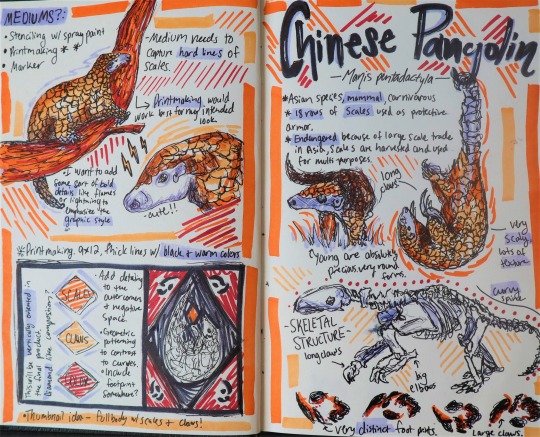 MEDIUMS?:
• Stenciling w/ spray paint
• Printmaking * *
• Marker
- Medium needs to
capture hard lines of
scales.
↳ Printmaking would
work best for my intended
look.
• I want to add
some sort of bold
details like flames
or lightning to
emphasize the
graphic style
- cute!!
*Printmaking. 9x12, thick lines w/ black + warm colors
This will be vertically oriented in
the final product.
Diamond like composition?
SCALES
CLAWS
• Add detailing
to the
outer corners
+ negative
space.
• Geometric
patterning
to contrast
to curves.
• Include
footprint
somewhere?
• Thumbnail idea - full body w/ scales + claws!
Chinese Pangolin
- Manis pentadactyla -
*Asian species, mammal, carnivorous
* 18 rows of scales used as protective
armor.
* Endangered because of large scale trade
in Asia, scales are harvested and used
for multi-purposes.
long
claws
very
scaly,
lots of
texture
*Young are absolutely
precious, very round
forms.
curvy
spine
- SKELETAL
STRUCTURE -
long claws
big
elbows
*Very distinct foot prints.
Large claws.